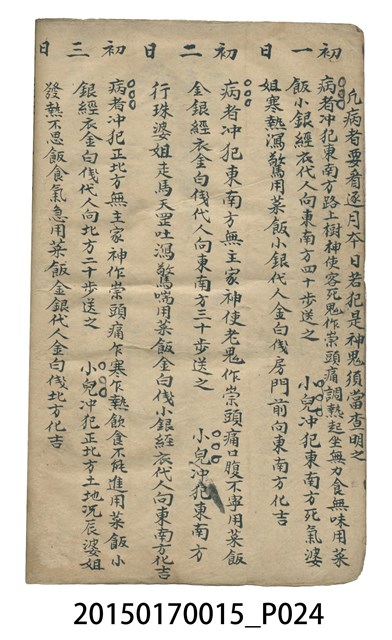 凡病者要看逐月夲日若犯是神鬼須當查明之
初一日
病者冲犯東南方路上樹神使客死鬼作祟頭痛調熱起坐無力食無味用菜
飯小銀經衣代人向東南方四十步送之 小兒冲犯東南方死氣婆
姐寒熱瀉驚用菜飯小銀代人金白伐房門前向東南方化吉
初二日
病者冲犯東南方無主家神使老鬼作祟頭痛口腹不寧用菜飯
金銀經衣金白伐代人向東南方三十步送之 小兒冲犯東南方
行珠婆姐走馬天罡吐瀉驚喘用菜飯金白伐小銀經衣代人向東南方化吉
初三日
病者冲犯正北方無主家神作祟頭痛乍寒乍熱飲食不能進用菜飯小
銀經衣金白伐代人向北方二十步送之 小兒冲犯正北方土地況辰婆姐
發熱不思飯食氣急用菜飯金銀代人金白伐北方化吉
20150170015_P024